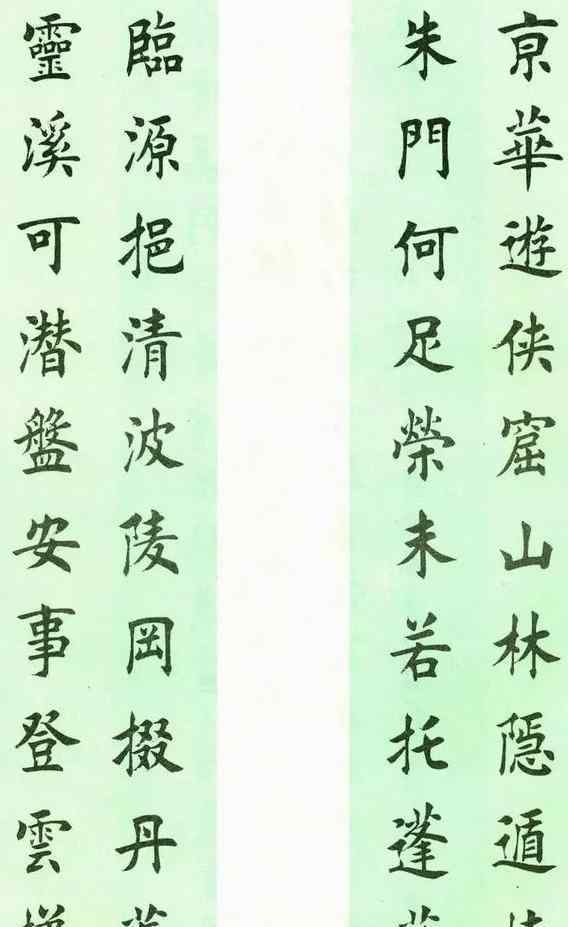 京華遊侠窟山林隠遁
朱門何足榮未若托蓬
臨源挹清波陵岡掇丹
靈溪可潜盤安事登雲